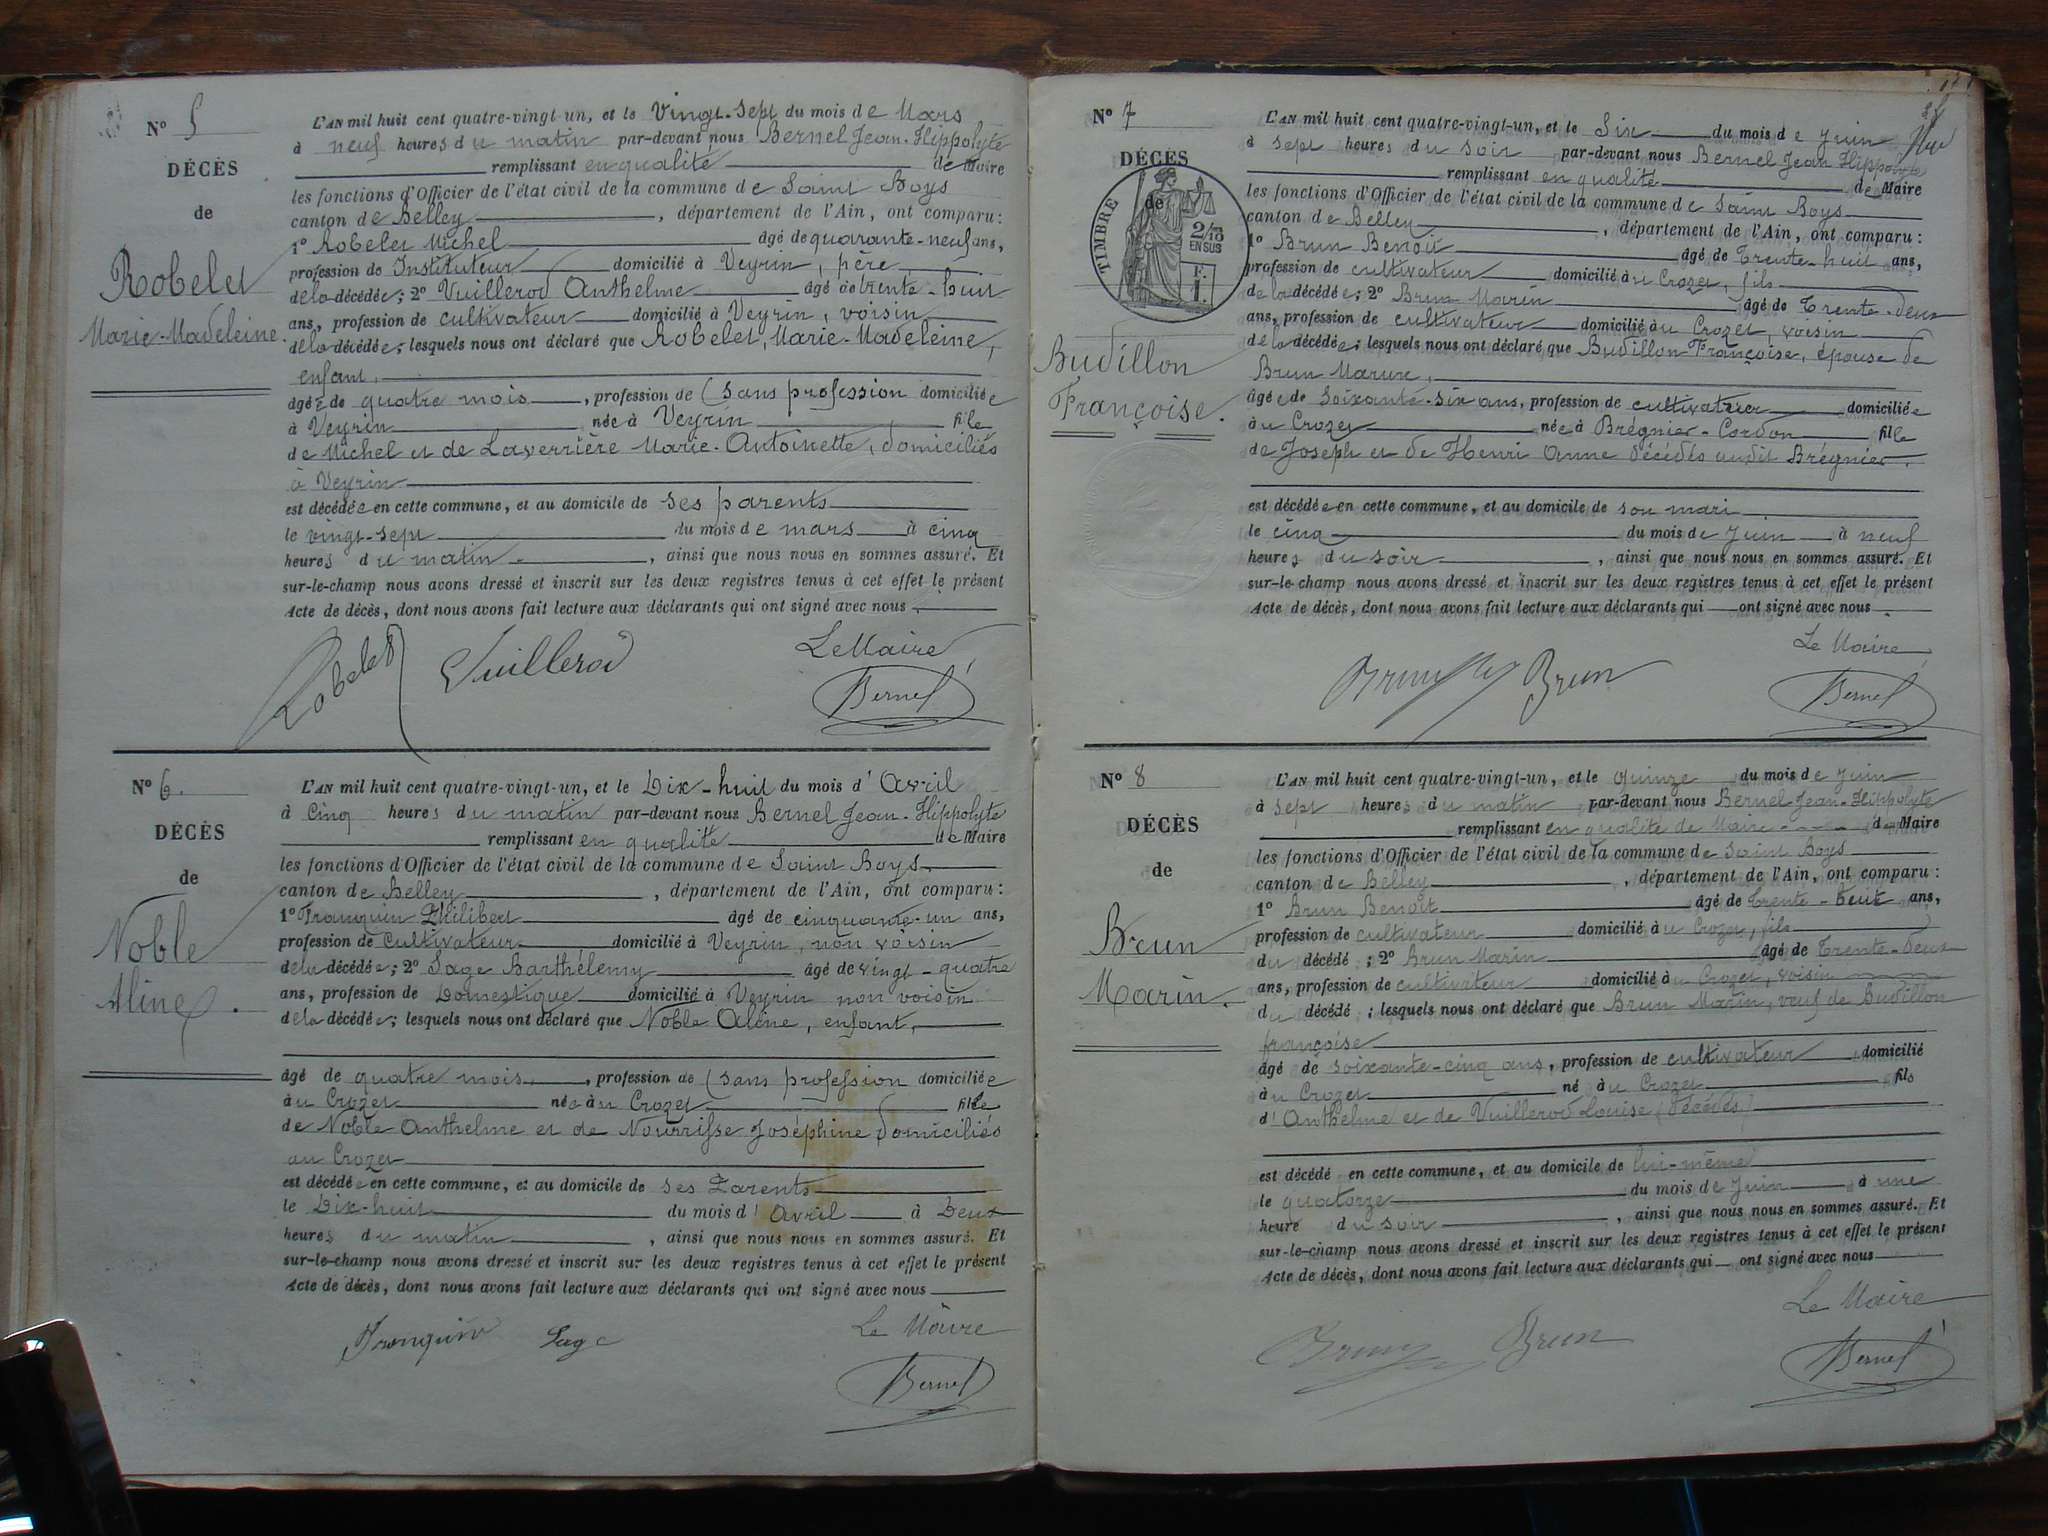 N° 5
DÉCÈS
de
Robelet
Marie-Madeleine.
L'AN mil huit cent quatre-vingt un, et le Vingt-Sept du mois de Mars
à neuf heures du matin par-devant nous Bernel Jean-Hippolyte
remplissant en qualité de Maire
les fonctions d'Officier de l'état civil de la commune de Saint Boys
canton de Belley, département de l'Ain, ont comparu:
1° Robelet Michel âgé de quarante-neuf ans,
profession de Instituteur domicilié à Veyrin, père
de la décédée; 2° Vuillerod Anthelme âgé de trente-huit
ans, profession de cultivateur domicilié à Veyrin, voisin
de la décédée; lesquels nous ont déclaré que Robelet, Marie-Madeleine,
enfant,
âgée de quatre mois, profession de (sans profession domiciliée
à Veyrin née à Veyrin fille
de Michel et de Laverrière Marie-Antoinette, domiciliés
à Veyrin
est décédée en cette commune, et au domicile de ses parents
le vingt-sept du mois de mars à cinq
heures du matin, ainsi que nous nous en sommes assuré. Et
sur-le-champ nous avons dressé et inscrit sur les deux registres tenus à cet effet le présent
Acte de décès, dont nous avons fait lecture aux déclarants qui ont signé avec nous.
Robelet Vuillerod Le Maire
Bernel
N° 6.
DÉCÈS
de
Noble
Aline.
L'AN mil huit cent quatre-vingt-un, et le Dix-huit du mois d'Avril
à Cinq heures du matin par-devant nous Bernel Jean-Hippolyte
remplissant en qualité de Maire
les fonctions d'Officier de l'état civil de la commune de Saint Boys
canton de Belley, département de l'Ain, ont comparu:
1° Franquin Philibert âgé de cinquante-un ans,
profession de cultivateur domicilié à Veyrin, non voisin
de la décédée; 2° Sage Barthélemy âgé de vingt-quatre
ans, profession de Domestique domicilié à Veyrin non voisin
de la décédée; lesquels nous ont déclaré que Noble Aline, enfant,
âgé de quatre mois, profession de (sans profession domiciliée
à u Crozet née à u Crozet fille
de Noble Anthelme et de Nourrisse Joséphine domiciliés
au Crozet
est décédée en cette commune, et au domicile de ses Parents
le Dix-huit du mois d'Avril à Deux
heures du matin, ainsi que nous nous en sommes assuré. Et
sur-le-champ nous avons dressé et inscrit sur les deux registres tenus à cet effet le présent
Acte de décès, dont nous avons fait lecture aux déclarants qui ont signé avec nous
Franquin Sage Le Maire
Bernel
N° 7
DÉCÈS
de
TIMBRE
2/10 EN SUS
F. 1.
Budillon
Françoise.
L'AN mil huit cent quatre-vingt-un, et le Six du mois de Juin
à sept heures du soir par-devant nous Bernel Jean Hippolyte
remplissant en qualité de Maire
les fonctions d'Officier de l'état civil de la commune de Saint Boys
canton de Belley, département de l'Ain, ont comparu:
1° Brun Benoît âgé de Trente-huit ans,
profession de cultivateur domicilié à u Crozet, fils
de la décédée; 2° Brun Marin âgé de Trente-deux
ans, profession de cultivateur domicilié à u Crozet, voisin
de la décédée; lesquels nous ont déclaré que Budillon Françoise, épouse de
Brun Marin,
âgée de Soixante-six ans, profession de cultivateur domiciliée
à u Crozet née à Brégnier-Cordon fille
de Joseph et de Henri Anne décédés audit Brégnier.
est décédée en cette commune, et au domicile de son mari
le cinq du mois de Juin à neuf
heures du soir, ainsi que nous nous en sommes assuré. Et
sur-le-champ nous avons dressé et inscrit sur les deux registres tenus à cet effet le présent
Acte de décès, dont nous avons fait lecture aux déclarants qui ont signé avec nous.
Brun Brun Le Maire
Bernel
N° 8
DÉCÈS
de
Brun
Marin.
L'AN mil huit cent quatre-vingt-un, et le quinze du mois de Juin
à sept heures du matin par-devant nous Bernel Jean-Hippolyte
remplissant en qualité de Maire de Maire
les fonctions d'Officier de l'état civil de la commune de Saint Boys
canton de Belley, département de l'Ain, ont comparu:
1° Brun Benoît âgé de Trente-huit ans,
profession de cultivateur domicilié à u Crozet, fils
du décédé; 2° Brun Marin âgé de Trente-deux
ans, profession de cultivateur domicilié à u Crozet, voisin
du décédé; lesquels nous ont déclaré que Brun Marin, veuf de Budillon
françoise
âgé de soixante-cinq ans, profession de cultivateur domicilié
à u Crozet né à u Crozet fils
d'Anthelme et de Vuillerod Louise (décédés)
est décédé en cette commune, et au domicile de lui-même
le quatorze du mois de Juin à une
heure du soir, ainsi que nous nous en sommes assuré. Et
sur-le-champ nous avons dressé et inscrit sur les deux registres tenus à cet effet le présent
Acte de décès, dont nous avons fait lecture aux déclarants qui ont signé avec nous
Brun Brun Le Maire
Bernel